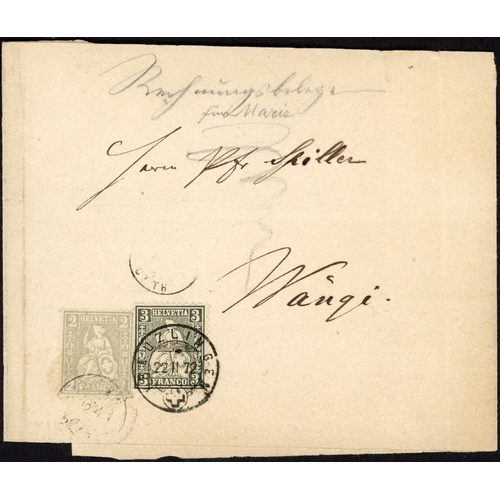 Rechnungsbelege
für Marie
Herrn Pfr Stiller
Wängi.
2 HELVETIA 2
FRANCO
3 HELVETIA 3
3 FRANCO 3
KREUZLINGEN
22 II 72